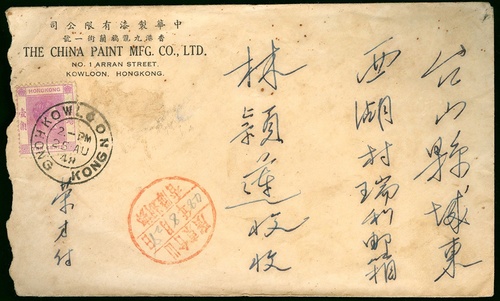 司公限有漆製華中
號一街蘭鴉龍九港香
THE CHINA PAINT MFG. CO., LTD.
NO. 1 ARRAN STREET.
KOWLOON, HONGKONG.
HONGKONG
KOWLOON
2 - PM
25 AU
48
HONG KONG
台山縣城東
西湖村瑞利郵箱
林穎蓮收收
荣才付